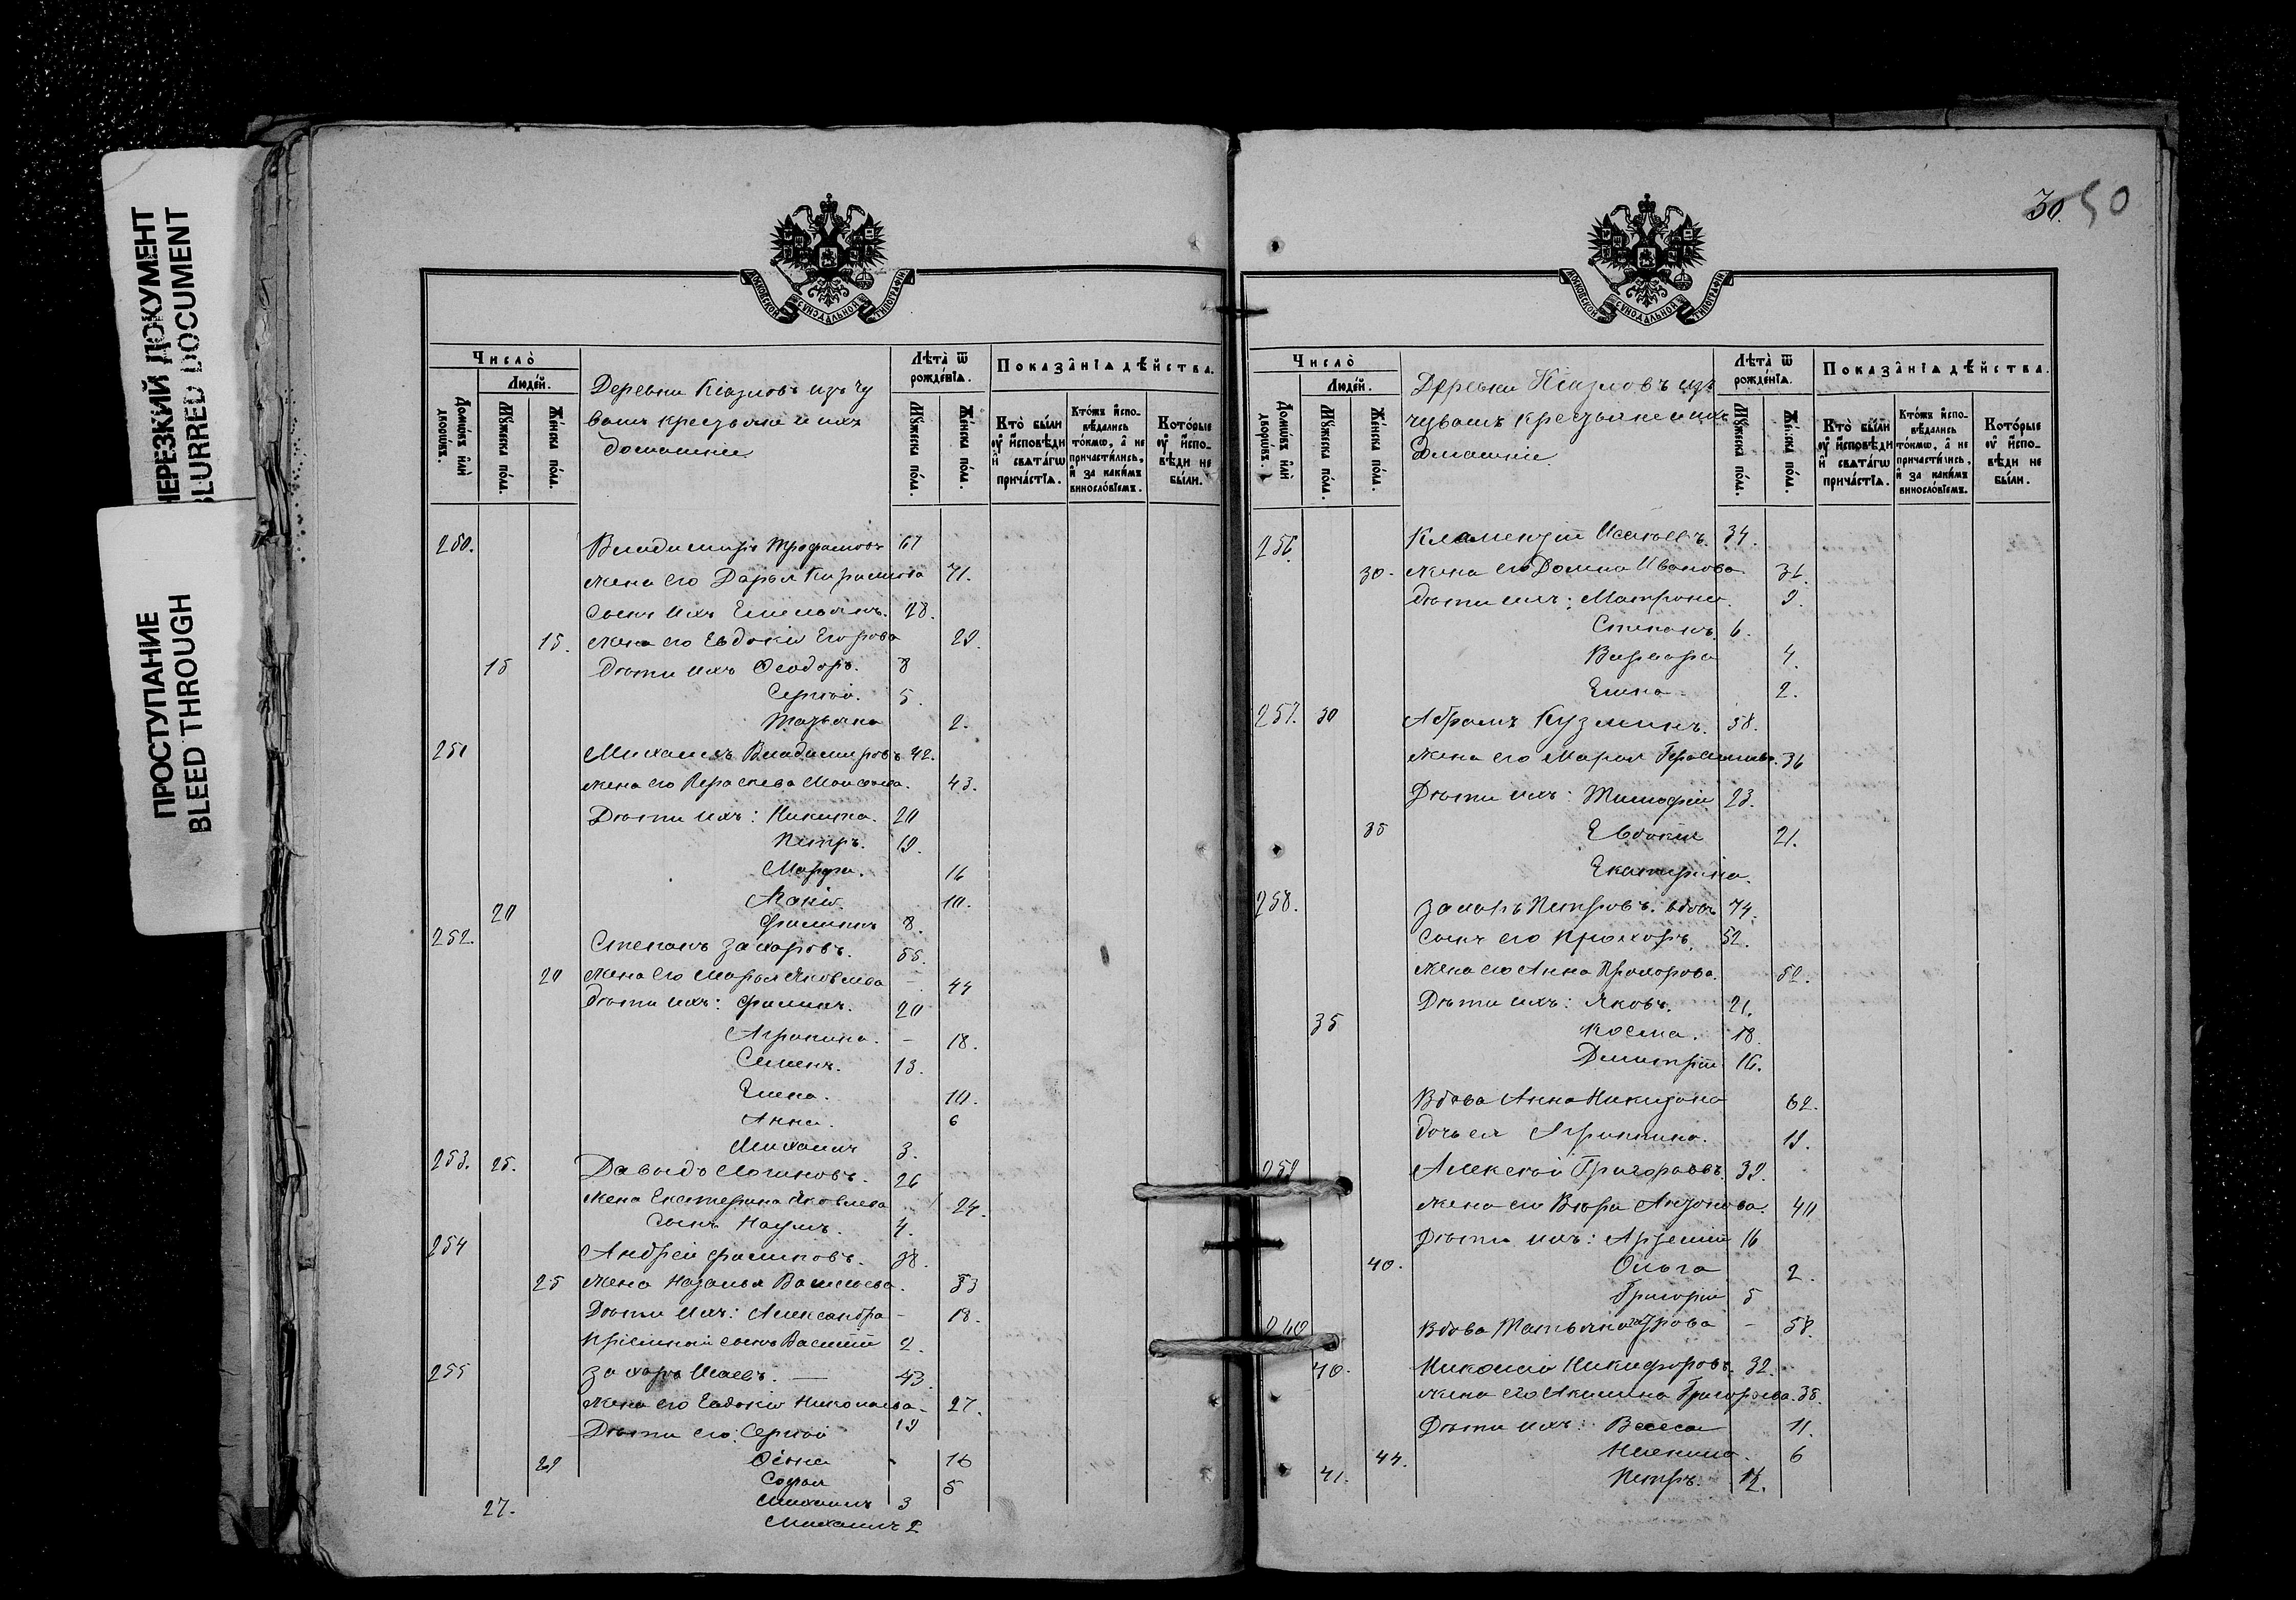 НЕРЕЗКИЙ ДОКУМЕНТ
BLURRED DOCUMENT
ПРОСТУПАНИЕ
BLEED THROUGH
МОСКОВСКОЙ СѴНОДАЛЬНОЙ ТИПОГРАФІИ
Число̀
Люде́й.
Домѡ́въ и҆лѝ дворѡ́въ.
Мꙋ́жеска по́лꙋ.
Же́нска по́лꙋ.
Деревни изъ чу
вашъ крестьяне и ихъ
домашніе
Лѣта̀ ѿ рожде́нїѧ.
Мꙋ́жеска по́лꙋ.
Же́нска по́лꙋ.
Показа̂нїѧ дѣ́йства.
Кто̀ бы́ли ᲂу҆ и҆сповѣди и҆ свѧта́гѡ прича́стїѧ.
Кто́жъ и҆спо-вѣ́дались то́кмѡ, а҆ не причасти́лись, и҆ за каки́мъ винослѡ́вїемъ.
Кото́рые ᲂу҆ и҆спо-вѣди не бы́ли.
250. Владимиръ Трофимовъ 67
жена его Дарья 71.
сынъ ихъ Емельянъ. 28.
15. жена его Евдокія Егорова 29.
15 Дѣти ихъ Ѳеодоръ. 8
Сергѣй. 5.
Татьяна 2.
251 Михаилъ Владимировъ 42.
жена его Параскева 43.
Дѣти ихъ: Никита. 20
Петръ. 19.
Марфа. 16
10.
20 Филиппъ 8.
252. Степанъ Захаровъ. 55.
20 жена его Марья Яковлева 44
Дѣти ихъ: Филиппъ. 20
Агрипина. - 18.
Семенъ. 13.
Елена. 10.
Анна. 6
Михаилъ 3.
253. 25. Давыдъ Логиновъ. 26
жена Екатерина Яковлева 24.
Сынъ Наумъ. 4.
254 Андрей Филиповъ. 38.
25 жена Наталья Васильева. 53
Дѣти ихъ: Александра - 18.
Пріемный сынъ Василій 2.
255 Захаръ Исаевъ. — 43.
жена его Евдокія Николаева - 27.
Дѣти его: Сергѣй 19
29 16
Софья 5
Михаилъ 3
27. Михаилъ 2
30. 50
МОСКОВСКОЙ СѴНОДАЛЬНОЙ ТИПОГРАФІИ
Число̀
Люде́й.
Домѡ́въ и҆лѝ дворѡ́въ.
Мꙋ́жеска по́лꙋ.
Же́нска по́лꙋ.
Деревни изъ
чувашъ крестьяне и ихъ
домашніе.
Лѣта̀ ѿ рожде́нїѧ.
Мꙋ́жеска по́лꙋ.
Же́нска по́лꙋ.
Показа̂нїѧ дѣ́йства.
Кто̀ бы́ли ᲂу҆ и҆сповѣди и҆ свѧта́гѡ прича́стїѧ.
Кто́жъ и҆спо-вѣ́дались то́кмѡ, а҆ не причасти́лись, и҆ за каки́мъ винослѡ́вїемъ.
Кото́рые ᲂу҆ и҆спо-вѣди не бы́ли.
256. Клементій Исаковъ. 34.
30. жена его Домна Иванова. 36.
Дѣти ихъ: Матрона. 9.
Степанъ. 6.
Варвара 4.
Елена 2.
257. 30 Абрамъ Кузминъ. 58.
жена его Марья Герасимова. 36
Дѣти ихъ: Тимофей 23.
35 Евдокія 21.
Екатерина.
258. Захаръ Петровъ. вдовъ 74.
сынъ его Прохоръ. 52.
жена его Анна Прохорова. 52.
Дѣти ихъ: Яковъ. 21.
35 Косма. 18.
Дмитрій 16.
Вдова Анна 62.
дочь ея Агрипина. 19.
259 Алексѣй Григорьевъ 39.
жена его Вѣра Антонова. 40
Дѣти ихъ: Артемій 16
40. Ольга 2.
Григорій 5
240 Вдова Татьяна - 58.
40. Николай Никифоровъ. 32.
жена его Акилина Григорьева. 38.
Дѣти ихъ: 11.
44. 6
41. Петръ. 12.